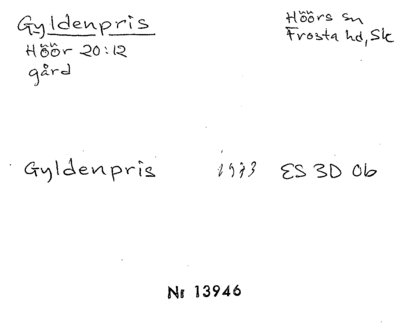 Gyldenpris
Höör 20:12
gård
Höörs sn
Frosta hd, Sk
Gyldenpris 1973 ES 3D 0b
Nr 13946